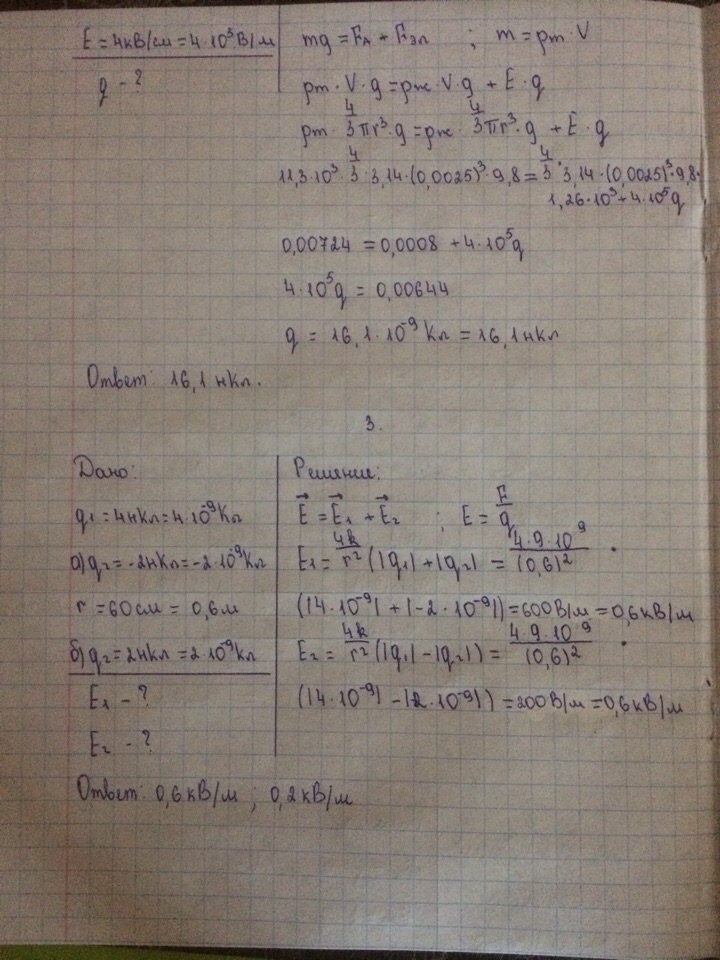 E = 4кВ/см = 4·10³ В/м
q - ?
mg = Fₐ + Fэл ; m = ρт·V
ρт · V · g = ρж · V · g + E · q
ρт · 4/3 πr³ · g = ρж · 4/3 πr³ · g + E · q
11,3·10³ · 4/3 · 3,14 · (0,0025)³ · 9,8 = 4/3 · 3,14 · (0,0025)³ · 9,8 ·
1,26·10³ + 4·10⁵q
0,00724 = 0,0008 + 4·10⁵q
4·10⁵q = 0,00644
q = 16,1·10⁻⁹ Кл = 16,1 нКл
Ответ: 16,1 нКл.
3.
Дано:
q₁ = 4нКл = 4·10⁻⁹Кл
а) q₂ = -2нКл = -2·10⁻⁹Кл
r = 60см = 0,6м
б) q₂ = 2нКл = 2·10⁻⁹Кл
E₁ - ?
E₂ - ?
Решение:
E⃗ = E⃗₁ + E⃗₂ ; E = F/q
E₁ = 4k/r² (|q₁| + |q₂|) = 4·9·10⁹/(0,6)² ·
(|4·10⁻⁹| + |-2·10⁻⁹|) = 600В/м = 0,6кВ/м
E₂ = 4k/r² (|q₁| - |q₂|) = 4·9·10⁹/(0,6)² ·
(|4·10⁻⁹| - |2·10⁻⁹|) = 200В/м = 0,6кВ/м
Ответ: 0,6кВ/м ; 0,2кВ/м